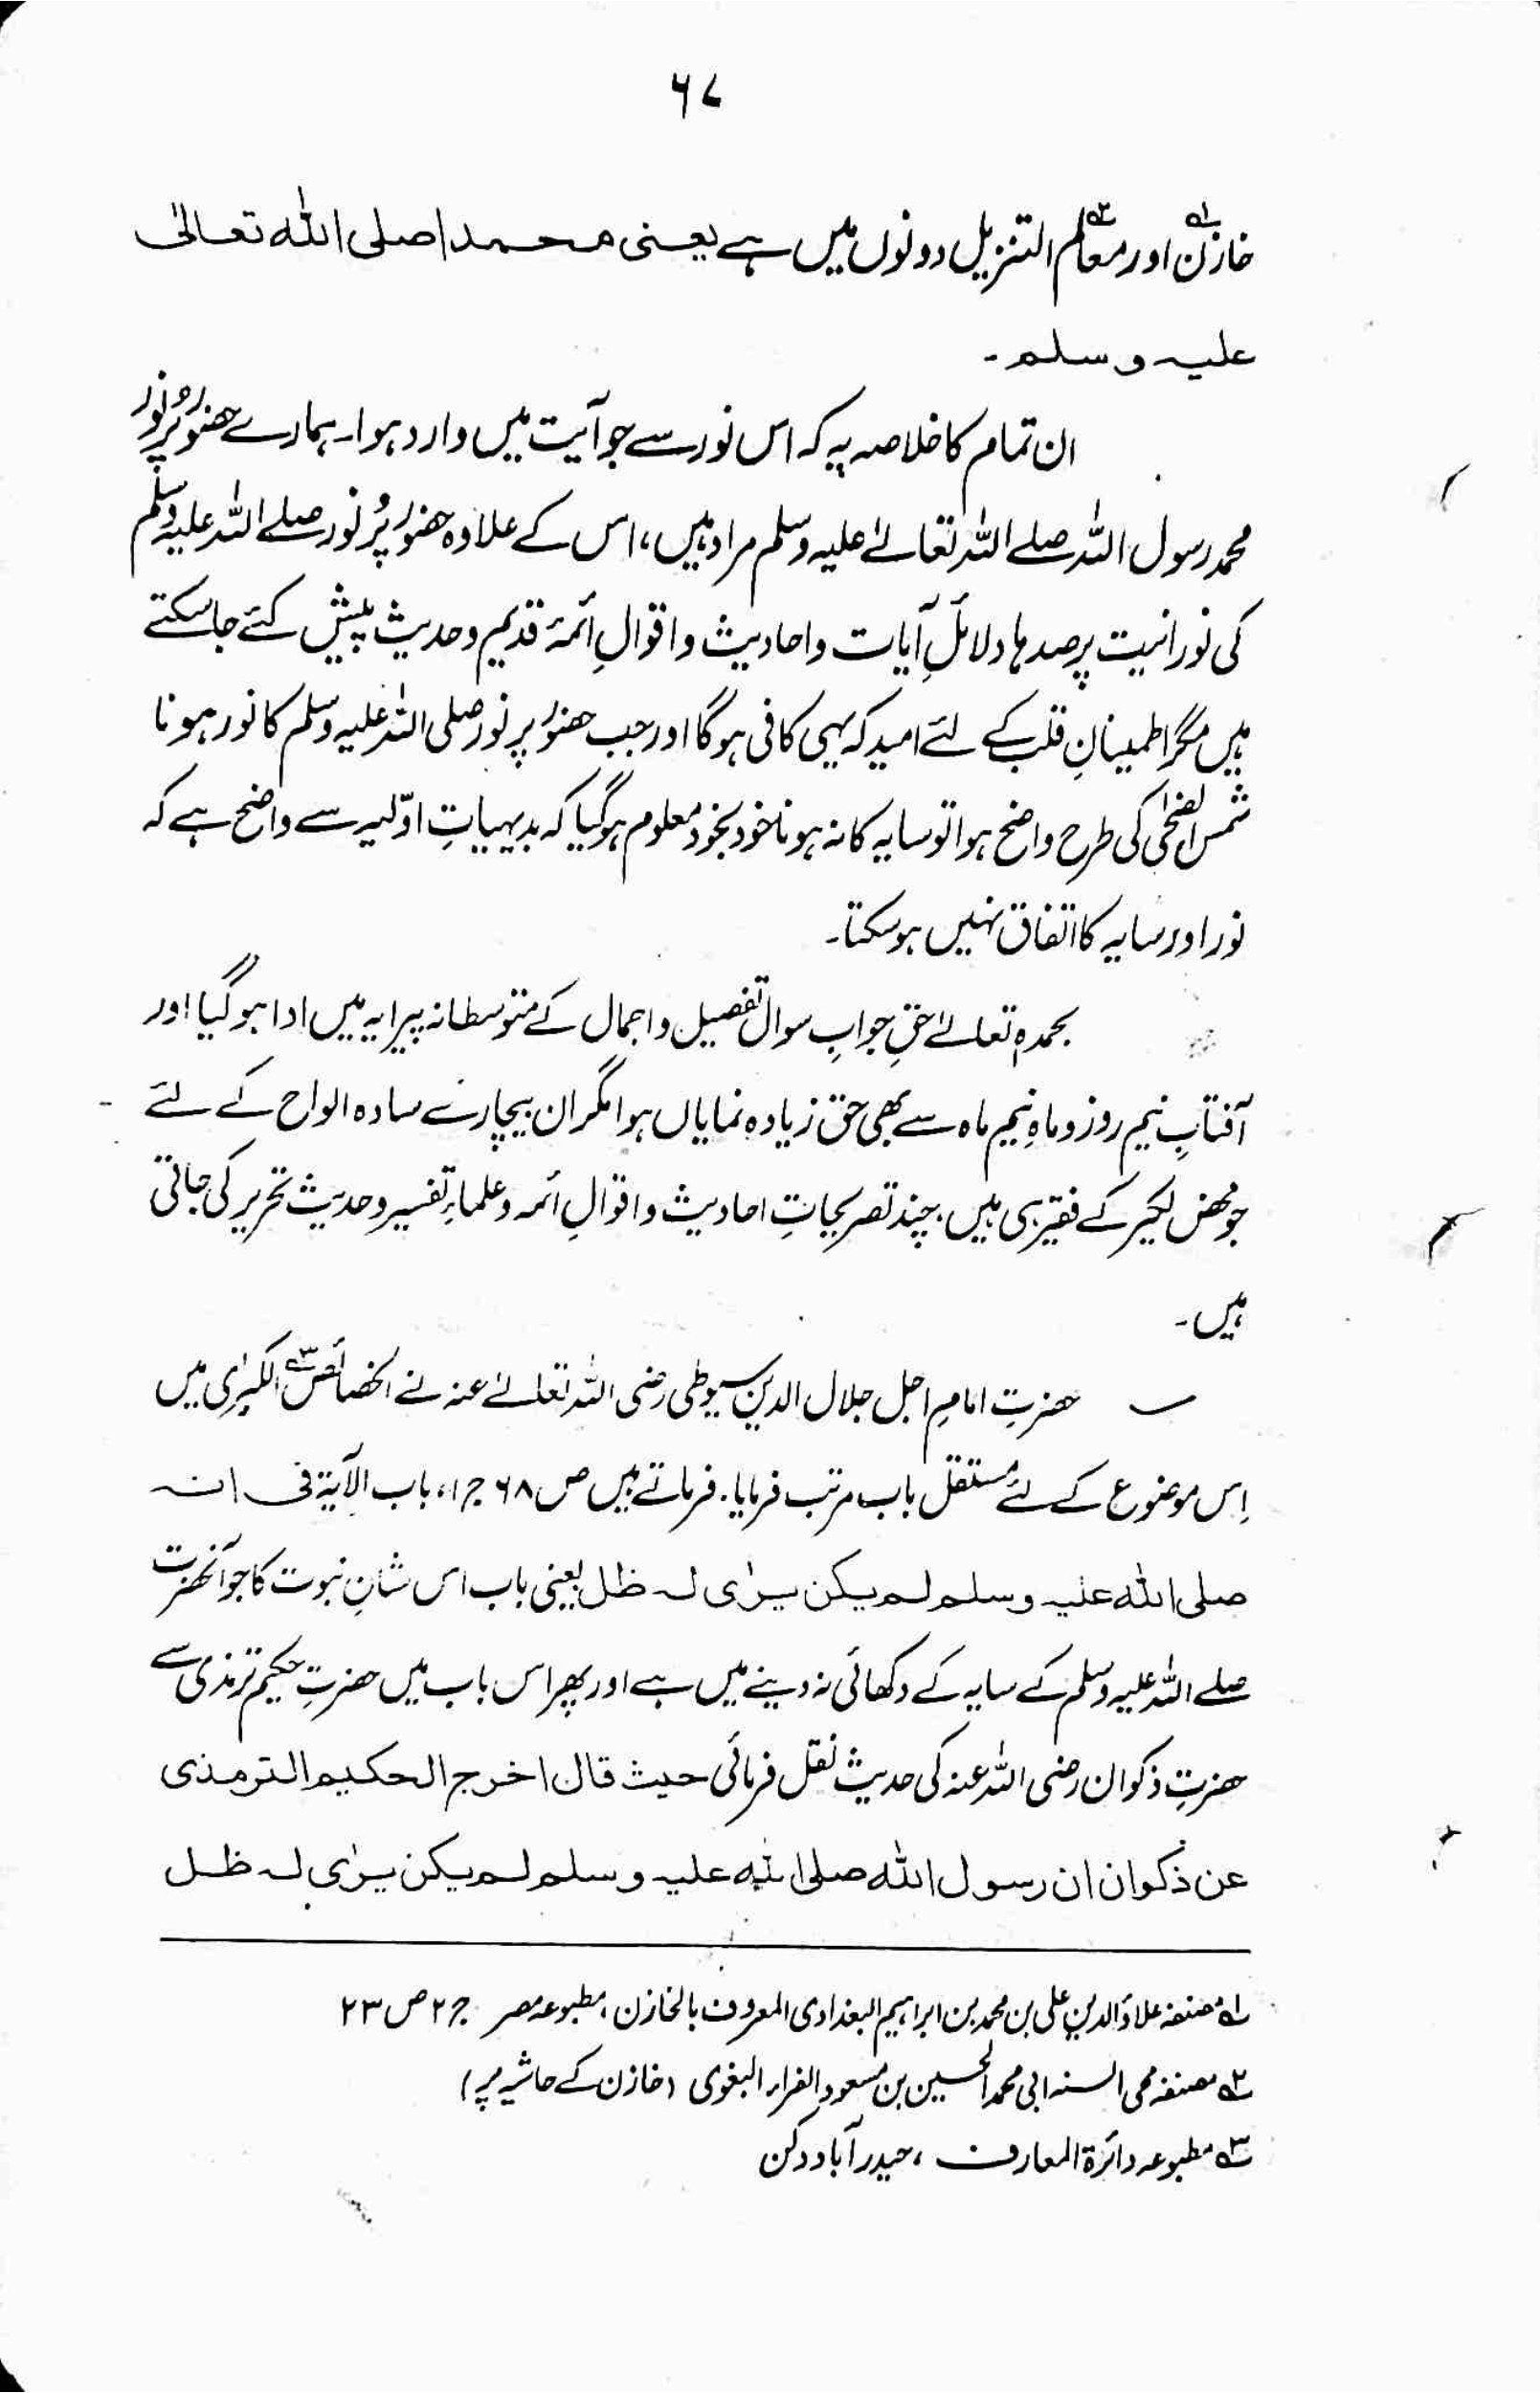 ۶۷
خازن؂۱ اور معالم؂۲ التنزیل دونوں میں ہے یعنی محمدا صلی اللہ تعالیٰ
علیہ وسلم۔
ان تمام کا خلاصہ یہ کہ اس نور سے جو آیت میں وارد ہوا۔ ہمارے حضور پُر نور
محمد رسول اللہ صلے اللہ تعالےٰ علیہ وسلم مراد ہیں، اس کے علاوہ حضور پُر نور صلے اللہ علیہ وسلم
کی نورانیت پر صدہا دلائلِ آیات و احادیث و اقوالِ ائمۂ قدیم و حدیث پیش کئے جا سکتے
ہیں مگر اطمینانِ قلب کے لئے امید کہ یہی کافی ہوگا اور جب حضور پر نور صلی اللہ علیہ وسلم کا نور ہونا
شمس الضحیٰ کی طرح واضح ہوا تو سایہ کا نہ ہونا خود بخود معلوم ہوگیا کہ بدیہیاتِ اوّلیہ سے واضح ہے کہ
نور اور سایہ کا اتفاق نہیں ہو سکتا۔
بحمدہٖ تعالےٰ حقِ جوابِ سوال تفصیل و اجمال کے متوسطانہ پیرایہ میں ادا ہو گیا اور
آفتابِ نیم روز و ماہِ نیم ماہ سے بھی حق زیادہ نمایاں ہوا مگر ان بیچارے سادہ الواح کے لئے
جو محض لکیر کے فقیر ہی ہیں، چند تصریحاتِ احادیث و اقوالِ ائمہ و علماءِ تفسیر و حدیث تحریر کی جاتی
ہیں۔
حضرتِ امامِ اجل جلال الدین سیوطی رضی اللہ تعالےٰ عنہ نے الخصائص؂۳ الکبرٰی میں
اِس موضوع کے لئے مستقل باب مرتب فرمایا۔ فرماتے ہیں ص ۶۸ ج ۱، باب الآیۃ فی انہ
صلی اللہ علیہ وسلم لم یکن یرٰی لہ ظل یعنی باب اس شانِ نبوت کا جو آنحضرت
صلے اللہ علیہ وسلم کے سایہ کے دکھائی نہ دینے میں ہے اور پھر اس باب میں حضرتِ حکیم ترمذی سے
حضرتِ ذکوان رضی اللہ عنہ کی حدیث نقل فرمائی حیث قال اخرج الحکیم الترمذی
عن ذکوان ان رسول اللہ صلی اللہ علیہ وسلم لم یکن یرٰی لہ ظل
؂۱ مصنفہ علاؤ الدین علی بن محمد بن ابراہیم البغدادی المعروف بالخازن، مطبوعہ مصر ج ۲ ص ۲۳
؂۲ مصنفہ محی السنہ ابی محمد الحسین بن مسعود الفراء البغوی (خازن کے حاشیہ پر)
؂۳ مطبوعہ دائرۃ المعارف، حیدر آباد دکن